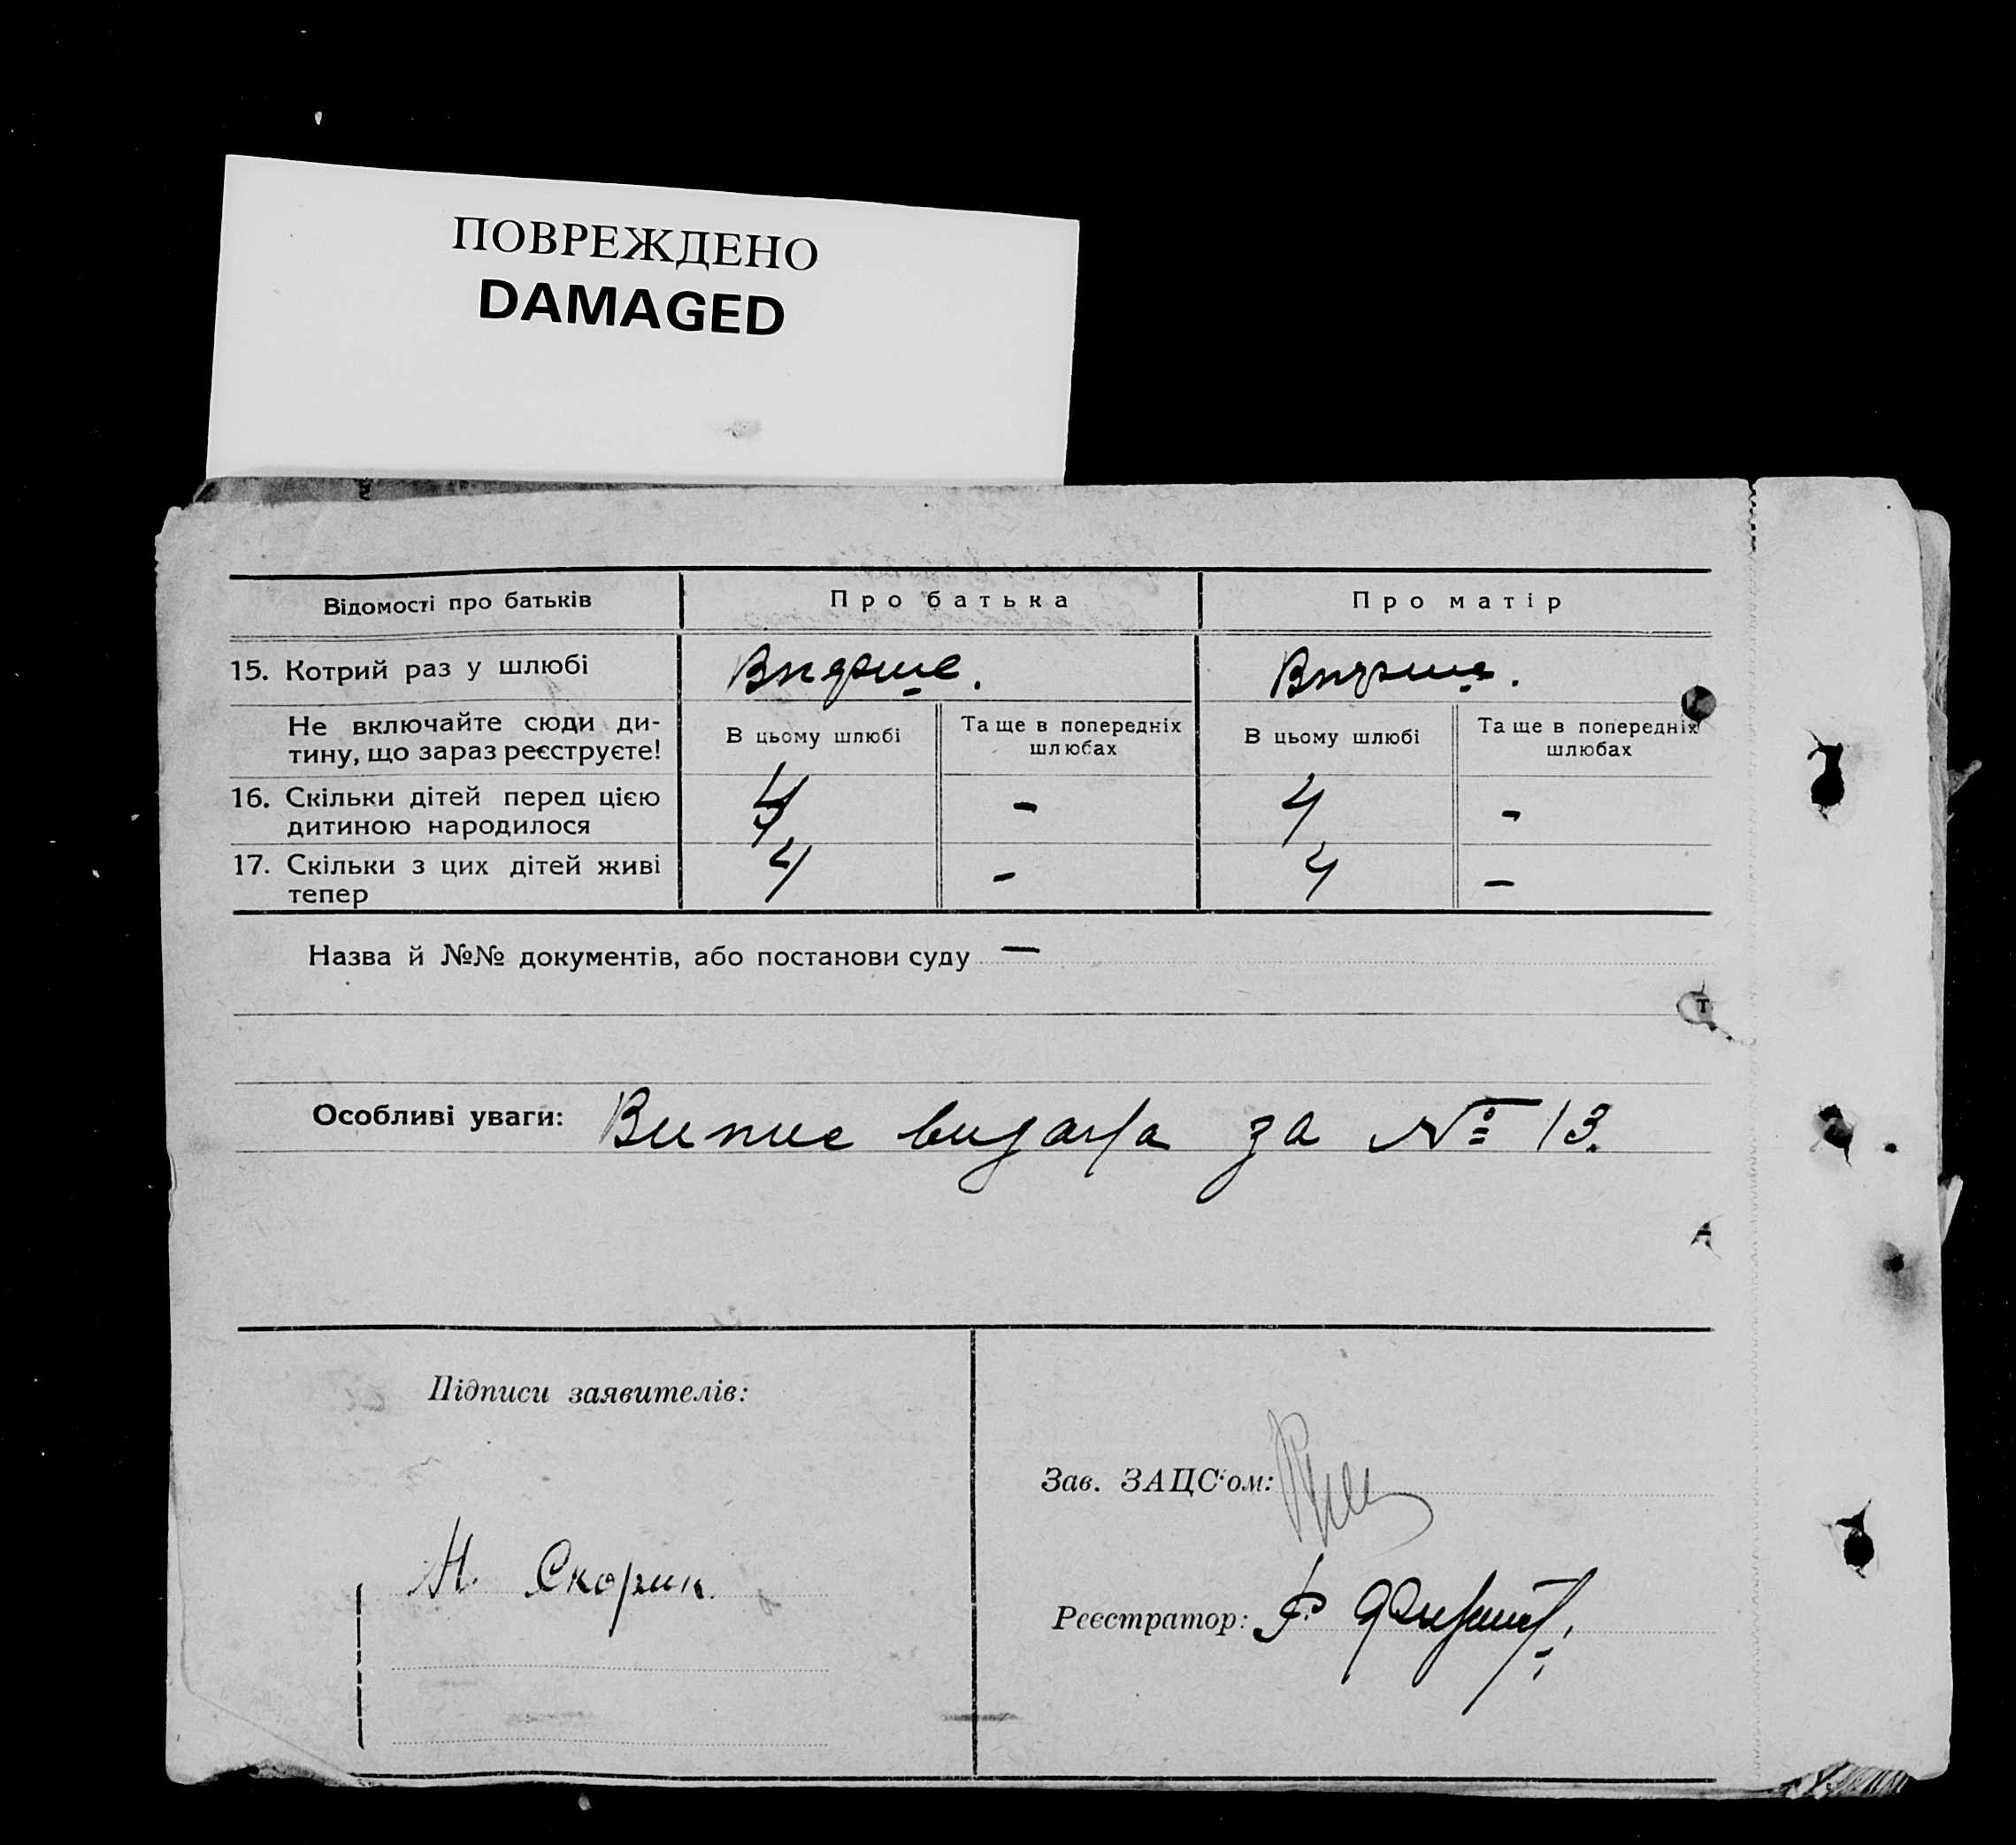 ПОВРЕЖДЕНО
DAMAGED
Відомості про батьків
Про батька
Про матір
15. Котрий раз у шлюбі
Вперше.
Вперше.
Не включайте сюди ди-
тину, що зараз реєструєте!
В цьому шлюбі
Та ще в попередніх
шлюбах
В цьому шлюбі
Та ще в попередніх
шлюбах
16. Скільки дітей перед цією
дитиною народилося
4
-
4
-
17. Скільки з цих дітей живі
тепер
4
-
4
-
Назва й №№ документів, або постанови суду —
Особливі уваги: Випис видата за № 13.
Підписи заявителів:
Н. Скорик
Зав. ЗАЦС'ом:
Реєстратор: